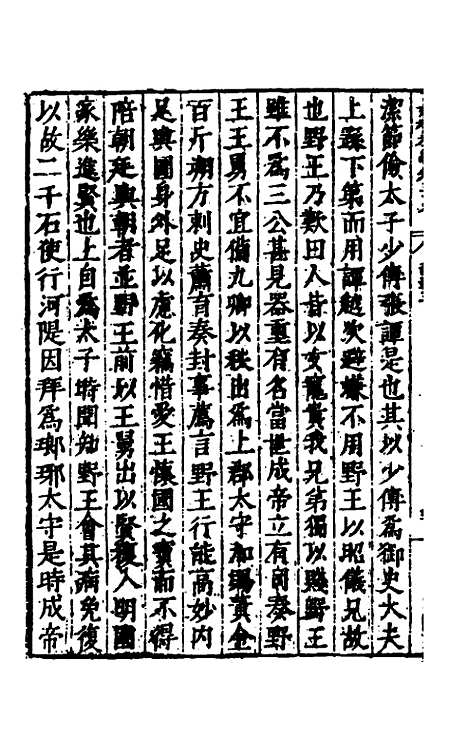 潔節儉太子少傅張譚是也其以少傅為御史大夫
上繇下第而用譚越次避嫌不用野王以昭儀兄故
也野王乃歎曰人皆以女寵貴我兄弟獨以賤野王
雖不為三公甚見器重有名當世成帝立有司奏野
王王舅不宜備九卿以秩出為上郡太守加賜黃金
百斤朔方刺史蕭育奏封事薦言野王行能高妙內
足與圖身外足以慮化竊惜野王懷國之寶而不得
陪朝廷與朝者並野王前以王舅出以賢復入明國
家樂進賢也上自為太子時聞知野王會其病免復
以故二千石使行河隄因拜為瑯琊太守是時成帝